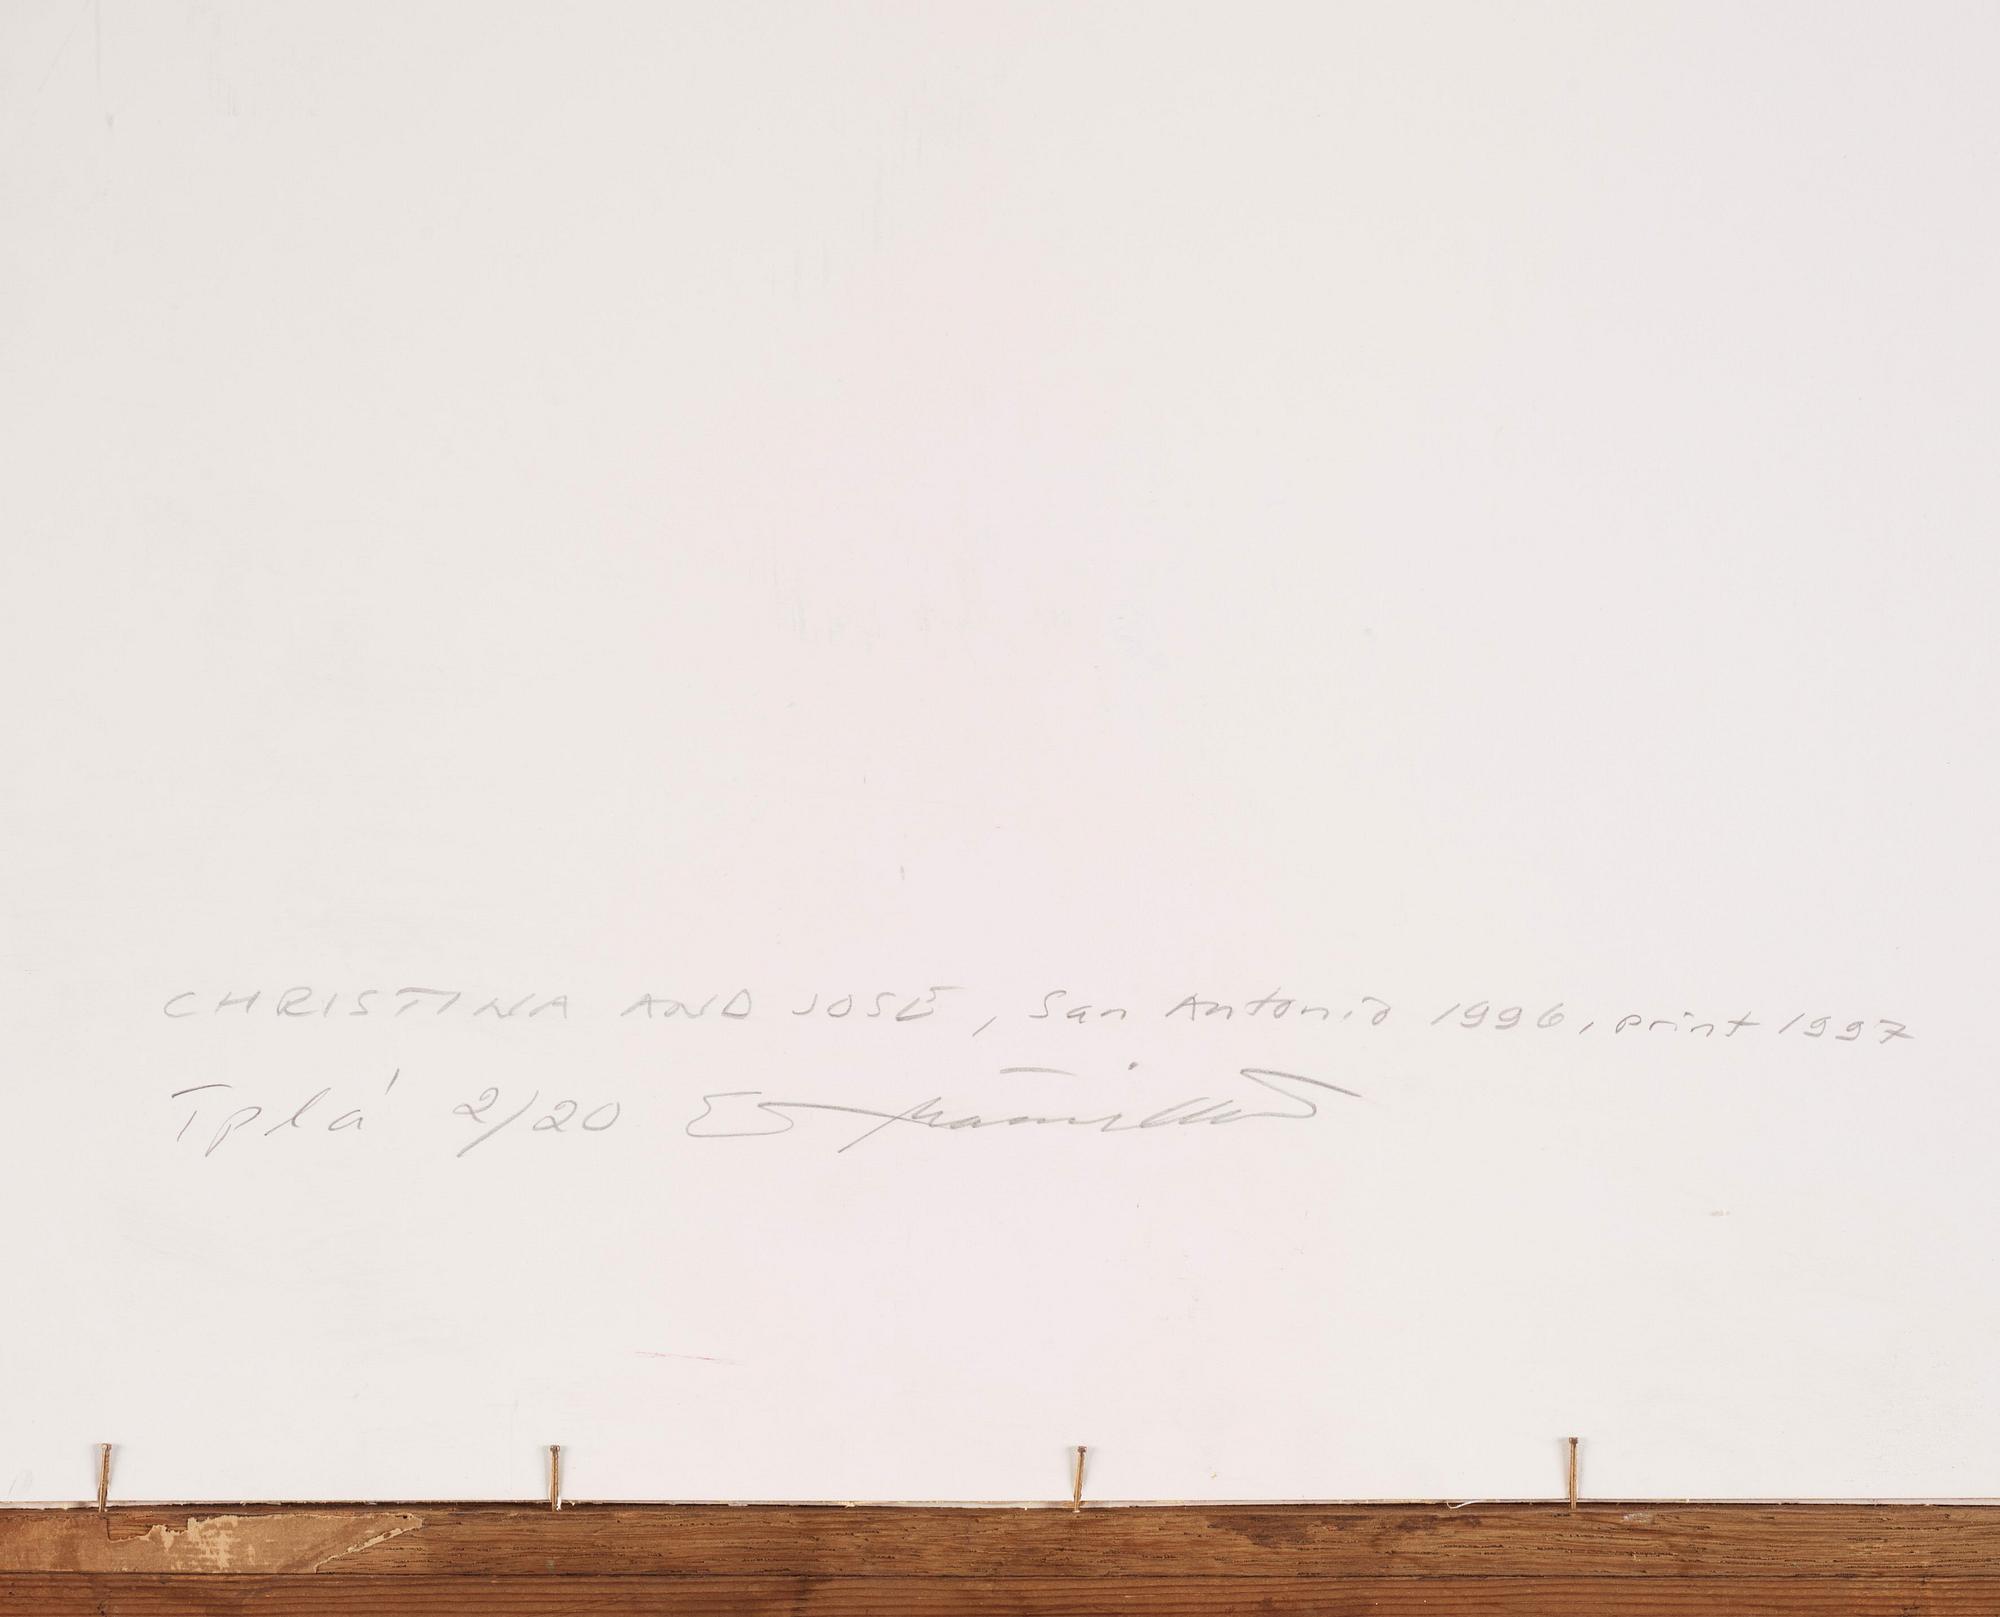 CHRISTINA AND JOSÉ, San Antonio 1996, print 1997
Tplá 2/20